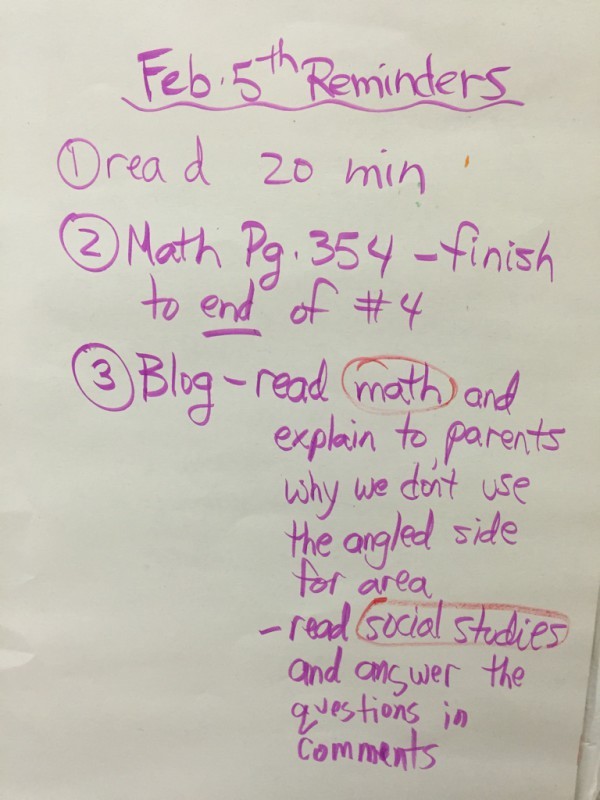 Feb. 5th Reminders
① read 20 min
② Math Pg. 354 - finish
to end of #4
③ Blog - read math and
explain to parents
why we don't use
the angled side
for area
- read social studies
and answer the
questions in
comments